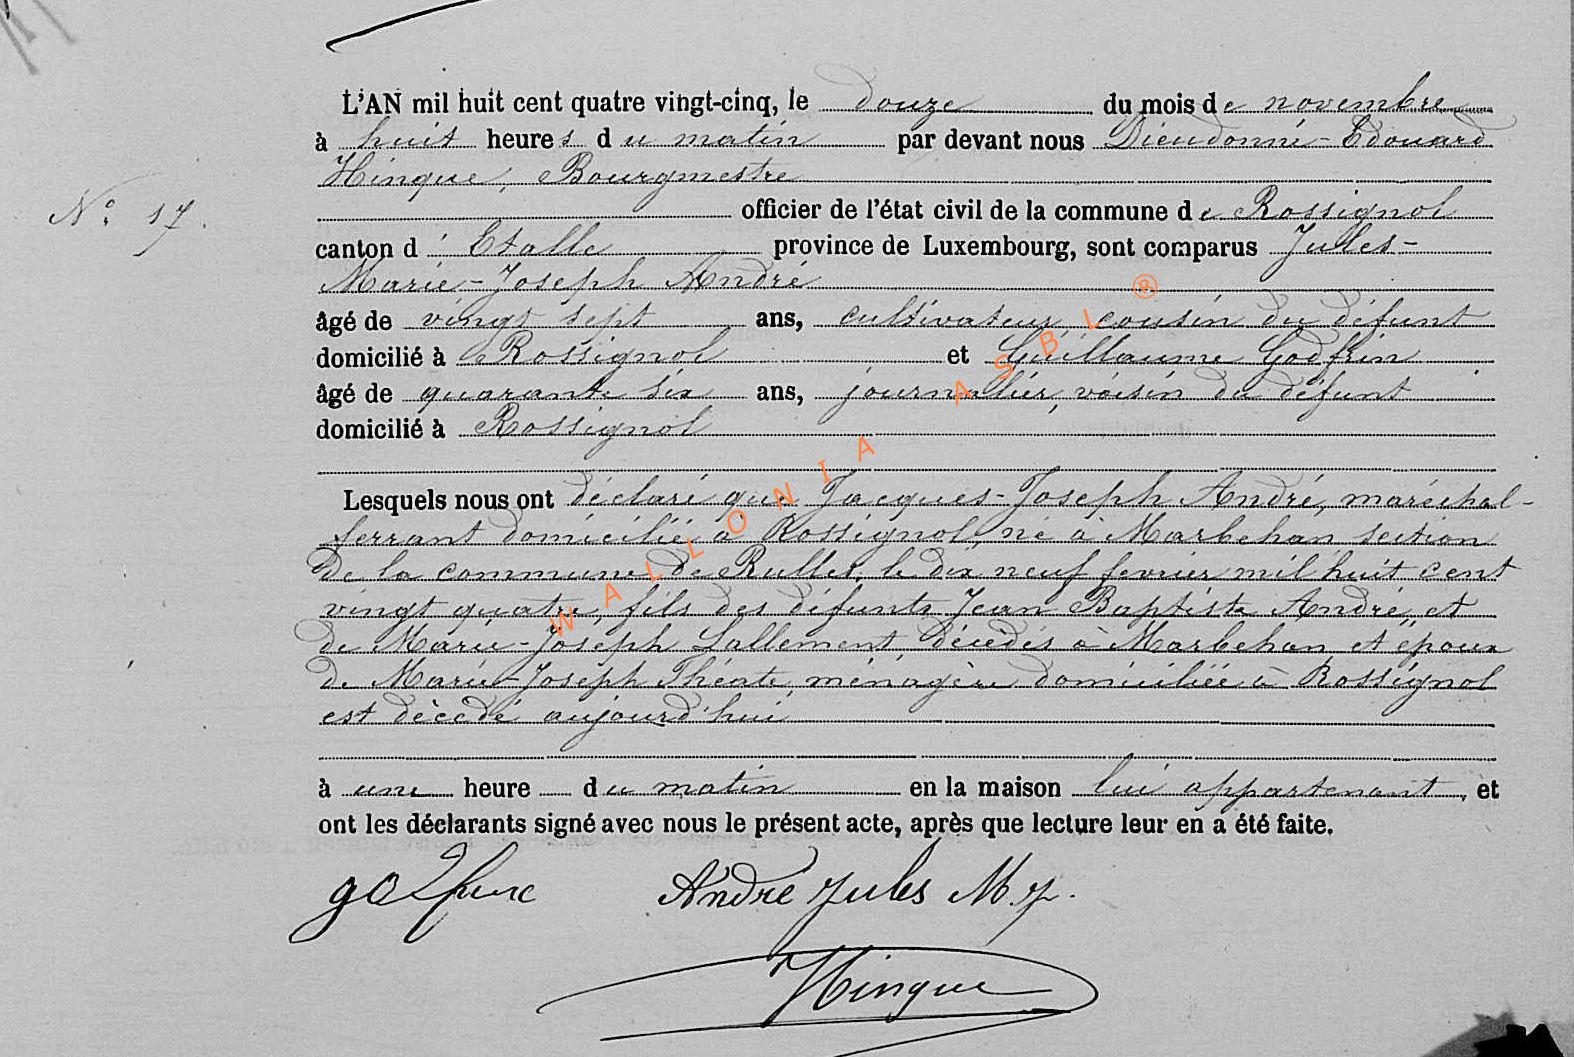 L'AN mil huit cent quatre vingt-cinq, le douze du mois de novembre
à huit heures du matin par devant nous Dieudonné-Edouard
Hinque, Bourgmestre
N° 17.
officier de l'état civil de la commune de Rossignol
canton d'Etalle province de Luxembourg, sont comparus Jules-
Marie-Joseph André
âgé de vingt sept ans, cultivateur, cousin du défunt
domicilié à Rossignol et Guillaume Godfrin
âgé de quarante six ans, journalier, voisin du défunt
domicilié à Rossignol
Lesquels nous ont déclaré que Jacques-Joseph André, maréchal-
ferrant domicilié à Rossignol, né à Marbehan section
de la commune de Rulles, le dix neuf fevrier mil huit cent
vingt quatre, fils des défunts Jean Baptiste André et
de Marie-Joseph Lallement, décédés à Marbehan et époux
de Marie-Joseph Théate, ménagère domiciliée à Rossignol
est décédé aujourd'hui
à une heure du matin en la maison lui appartenant, et
ont les déclarants signé avec nous le présent acte, après que lecture leur en a été faite.
André Jules M. J.
Hinque
WALLONIA ASBL ®